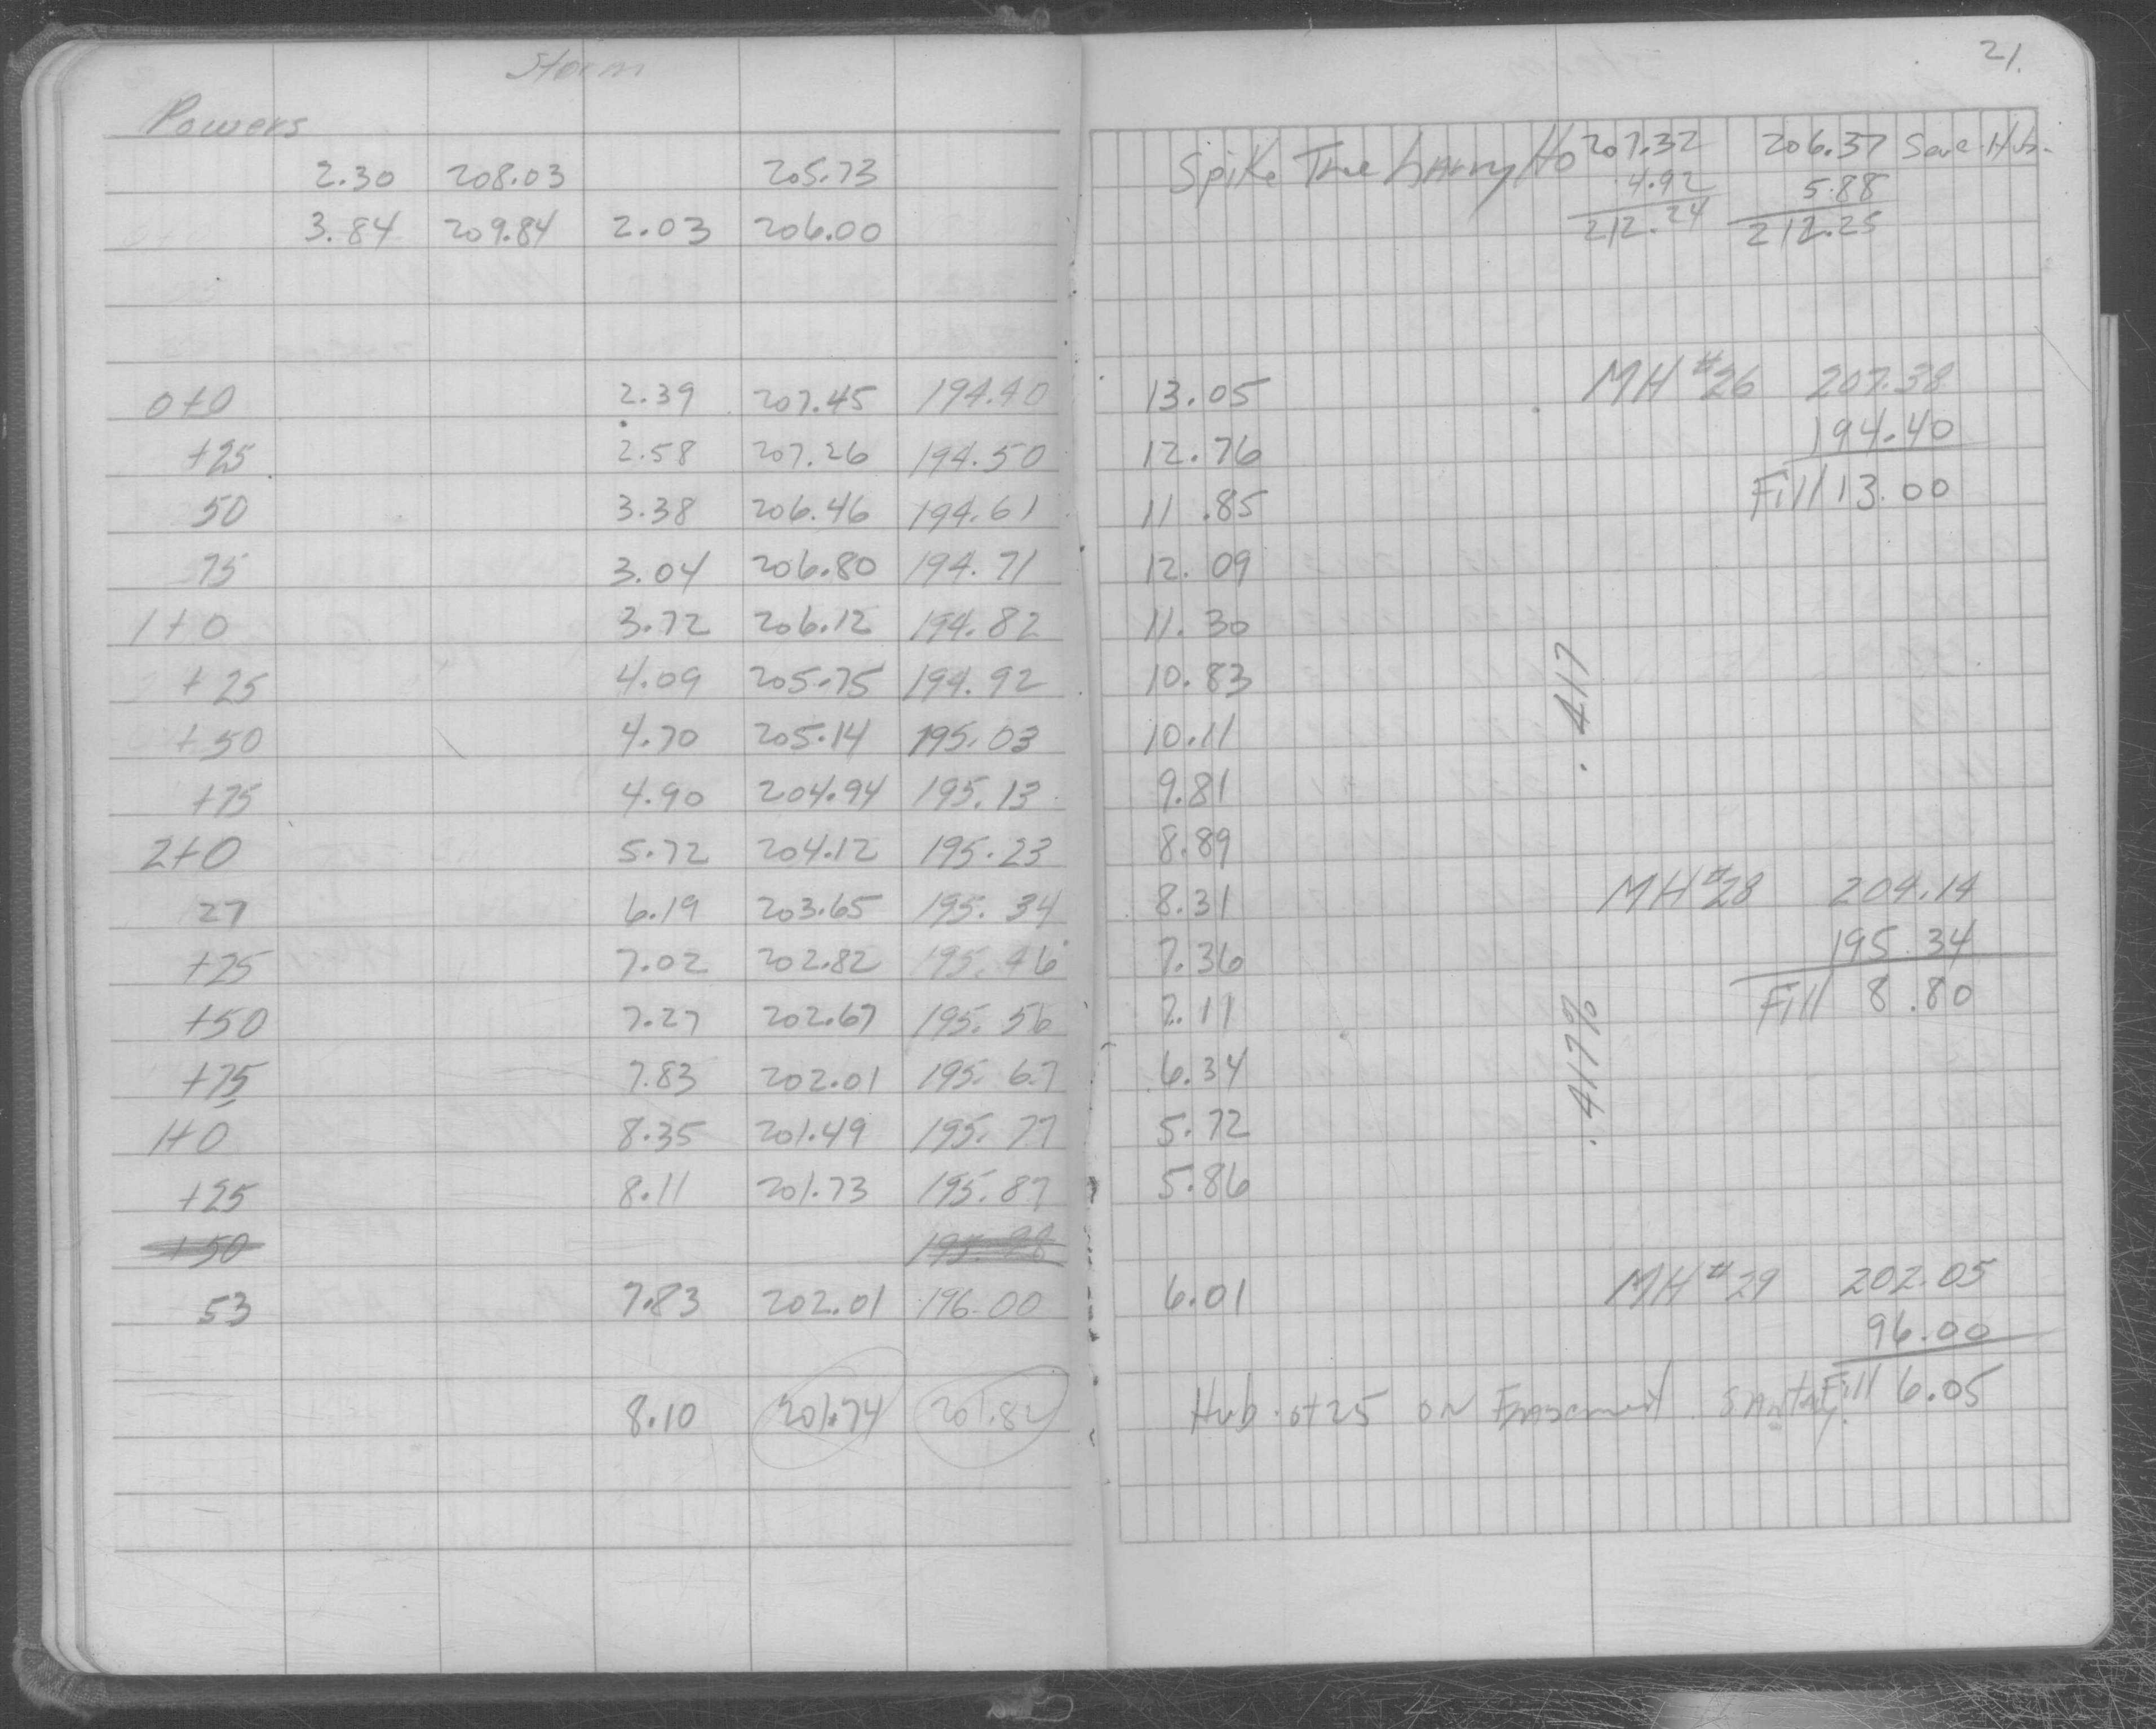 Storm
21.
Powers
2.30 208.03 205.73 Spike Tree Larry Ho 207.32 206.37 Save Hub.
4.92 5.88
3.84 209.84 2.03 206.00 212.24 212.25
0+0 2.39 207.45 194.40 13.05 MH #26 207.38
194.40
+25 2.58 207.26 194.50 12.76
50 3.38 206.46 194.61 11.85 Fill 13.00
75 3.04 206.80 194.71 12.09
1+0 3.72 206.12 194.82 11.30
+25 4.09 205.75 194.92 10.83 .417
+50 4.70 205.14 195.03 10.11
+75 4.90 204.94 195.13 9.81
2+0 5.72 204.12 195.23 8.89
27 6.19 203.65 195.34 8.31 MH #28 204.14
195.34
+25 7.02 202.82 195.46 7.36
+50 7.27 202.67 195.56 7.11 Fill 8.80
+75 7.83 202.01 195.67 6.34 .417%
1+0 8.35 201.49 195.77 5.72
+25 8.11 201.73 195.87 5.86
+50 195.98
53 7.83 202.01 196.00 6.01 MH #29 202.05
96.00
8.10 201.74 201.82 Hub 0+25 on Easement Fill 6.05